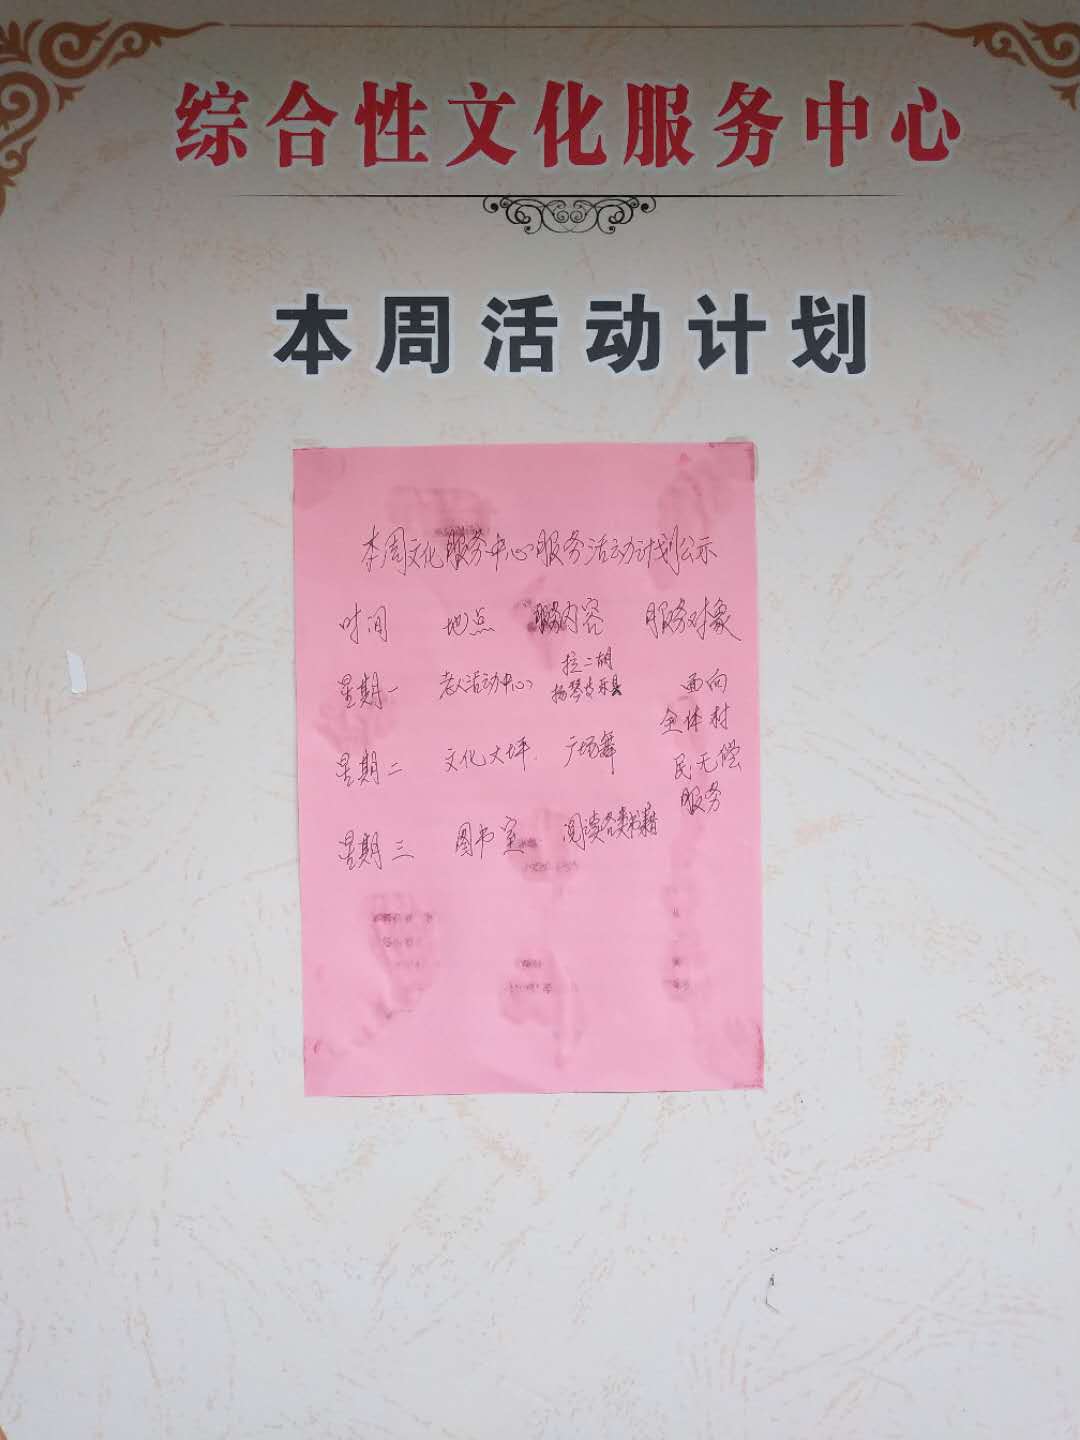 综合性文化服务中心
本周活动计划
本周文化服务中心服务活动计划公示
时间 地点 服务内容 服务对象
星期一 老人活动中心 拉二胡
扬琴 面向
全体村
星期二 文化大坪 广场舞 民无偿
服务
星期三 图书室 阅读各类书籍